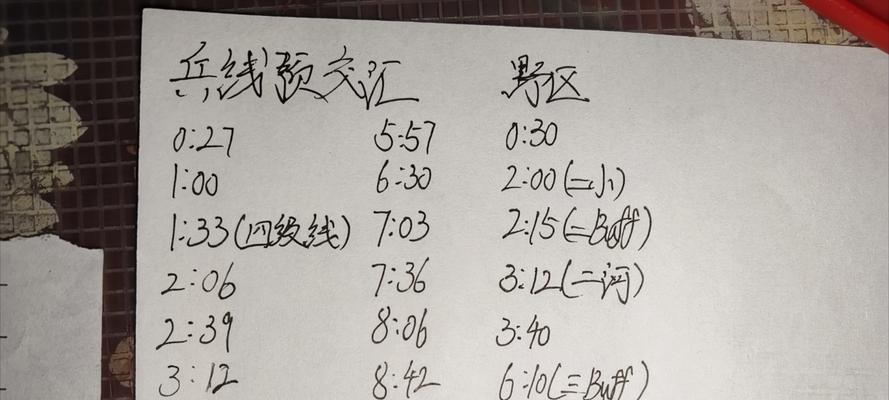 兵线预交汇 野区
0:27 5:57 0:30
1:00 6:30 2:00(二小)
1:33(四级线) 7:03 2:15(二Buff)
2:06 7:36 3:12(二河)
2:39 8:06 3:40
3:12 8:42 6:10(三Buff)